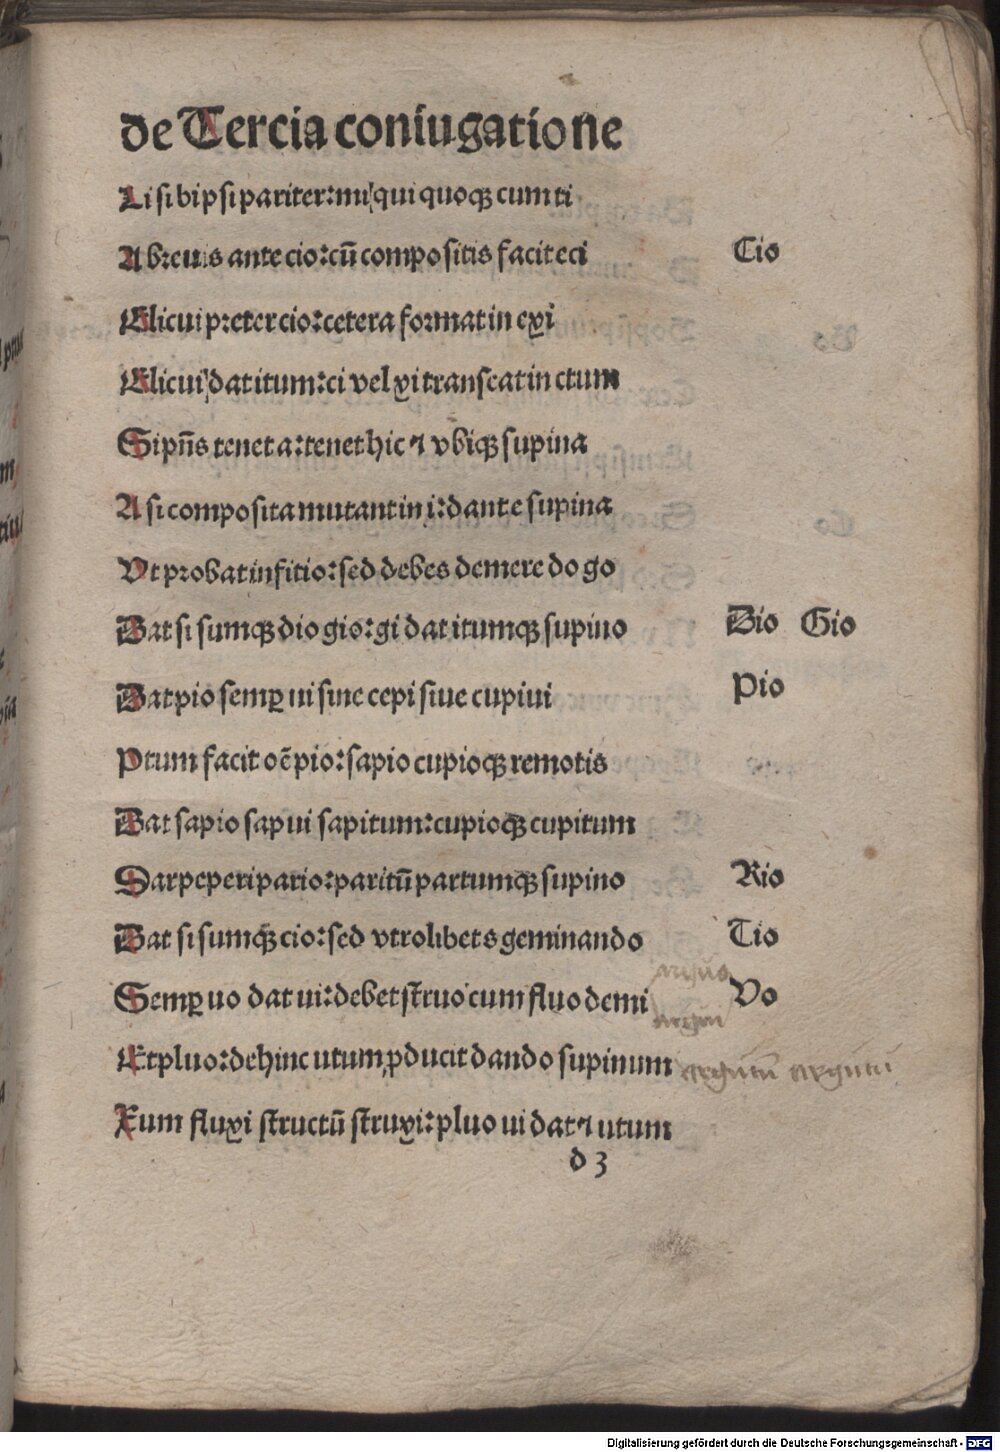 de Tercia coniugatione
Li si bi psi pariter: mi qui quoqꝫ cum ti
A breuis ante cio: cū compositis facit eci Cio
Elicui preter cio: cetera format in exi
Elicui dat itum: ci vel xi transeat in ctum
Si pn̄s tenet a: tenet hic ⁊ vbiqꝫ supina
A si composita mutant in i: dant e supina
Vt probat infitio: sed debes demere do go
Dat si sumqꝫ dio gio: gi dat itumqꝫ supino Dio Gio
Dat pio semꝑ ui siue cepi siue cupiui Pio
Ptum facit oē pio: sapio cupioqꝫ remotis
Dat sapio sapui sapitum: cupioqꝫ cupitum
Dar pe peri pario: paritū partumqꝫ supino Rio
Dat si sumqꝫ cio: sed vtrolibet s geminando Tio
arguo
Semꝑ uo dat ui: debet struo cum fluo demi Vo
argui
Et pluo: dehinc utum ꝓducit dando supinum argutū argutu
Xum fluxi structū struxi: pluo ui dat ⁊ utum
d 3
Digitalisierung gefördert durch die Deutsche Forschungsgemeinschaft - DFG